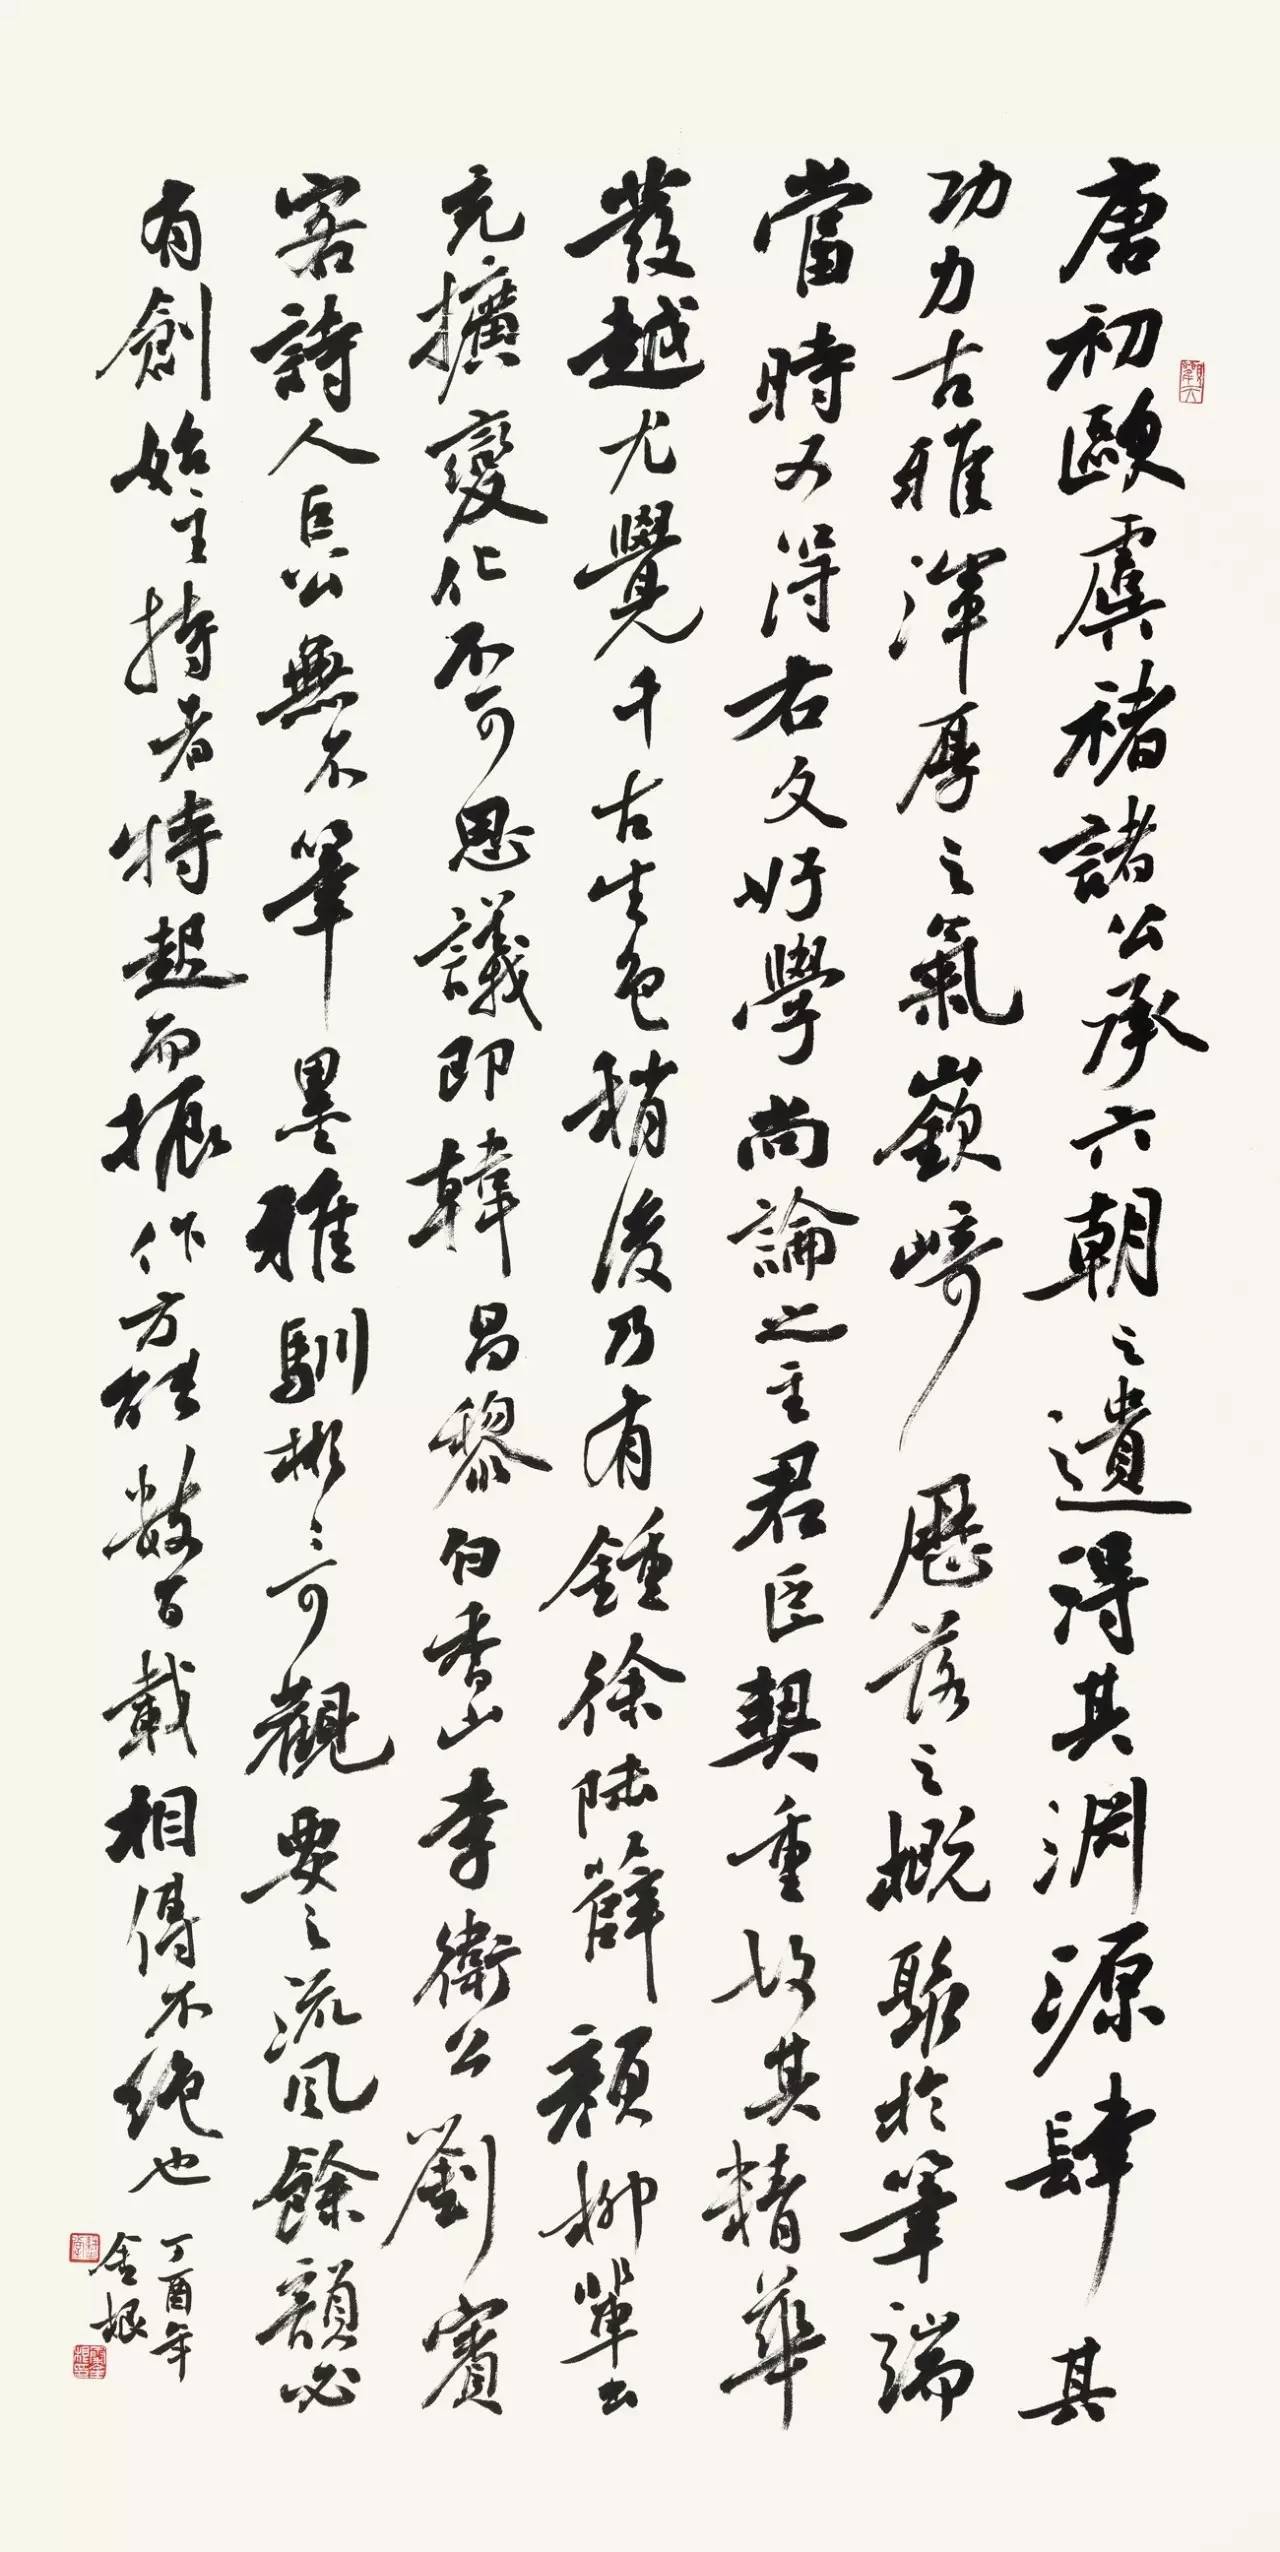 唐初歐虞褚諸公承六朝之遺得其淵源肆其
功力古雅渾厚之氣嶔崎歷落之概聚於筆端
當時又得右文好學尚論之主君臣契重故其精華
發越尤覺千古生色稍後乃有鍾徐陸薛顏柳輩出
充擴變化不可思議即韓昌黎白香山李衛公劉賓
客詩人巨公無不筆墨雅馴彬々可觀要之流風餘韻必
有創始主持者特起而振作方能數百載相傳不絕也
丁酉年
金根